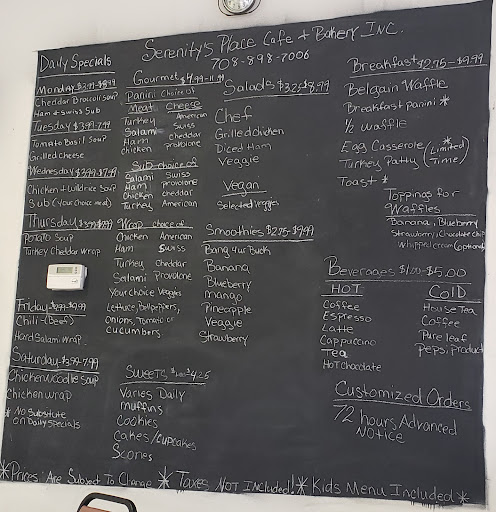 Serenity's Place Cafe + Bakery INC.
708-898-7006
Daily Specials
Cheddar Broccoli soup
Ham + Swiss Sub
Tomato Basil Soup
Grilled Cheese
Chicken + Wild rice soup
Sub (your choice meat)
Potato Soup
Turkey Cheddar Wrap
Chili-(Beef)
Hard Salami Wrap
Saturday-$3.99-7.99
Chicken Noodle Soup
Chicken Wrap
* No Substitute
on Daily Specials
Gourmet $4.99-11.99
Panini choice of
Meat Cheese
Turkey American
Salami Swiss
Ham Cheddar
Chicken Provolone
Sub choice of
Salami Swiss
Ham Provolone
Chicken Cheddar
Turkey American
Wrap choice of
Chicken American
Ham Swiss
Turkey Cheddar
Salami Provolone
Your choice Veggies
Lettuce, Bellpeppers,
Onions, Tomato or
Cucumbers
Sweets
Varies Daily
Muffins
Cookies
Cakes/Cupcakes
Scones
Salads $3.25-$8.99
Chef
Grilled chicken
Diced Ham
Veggie
Vegan
Selected Veggies
Smoothies $2.75-$9.99
Bang 4 ur Buck
Banana
Blueberry
Mango
Pineapple
Veggie
Strawberry
Breakfast $2.75-$9.99
Belgain Waffle
Breakfast Panini *
1/2 Waffle
Egg Casserole *
Turkey Patty (Limited Time)
Toast *
Toppings for
Waffles
Banana, Blueberry
Strawberry, Chocolate Chip
Whipped cream (optional)
Beverages $1.00-$5.00
HOT
Coffee
Espresso
Latte
Cappuccino
Tea
Hot Chocolate
COLD
House Tea
Coffee
Pure leaf
Pepsi product
Customized Orders
72 hours Advanced
Notice
*Prices Are Subject To Change * Taxes Not Included! * Kids Menu Included *